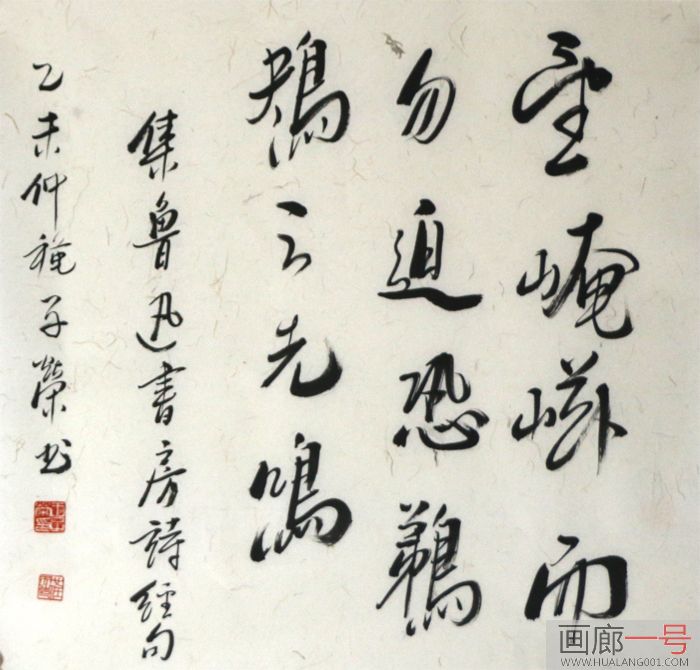 望崦嵫而
勿迫恐鵜
鴂之先鳴
集魯迅書房詩經句
乙未仲穐子榮书
画廊一号
WWW.HUALANG001.COM